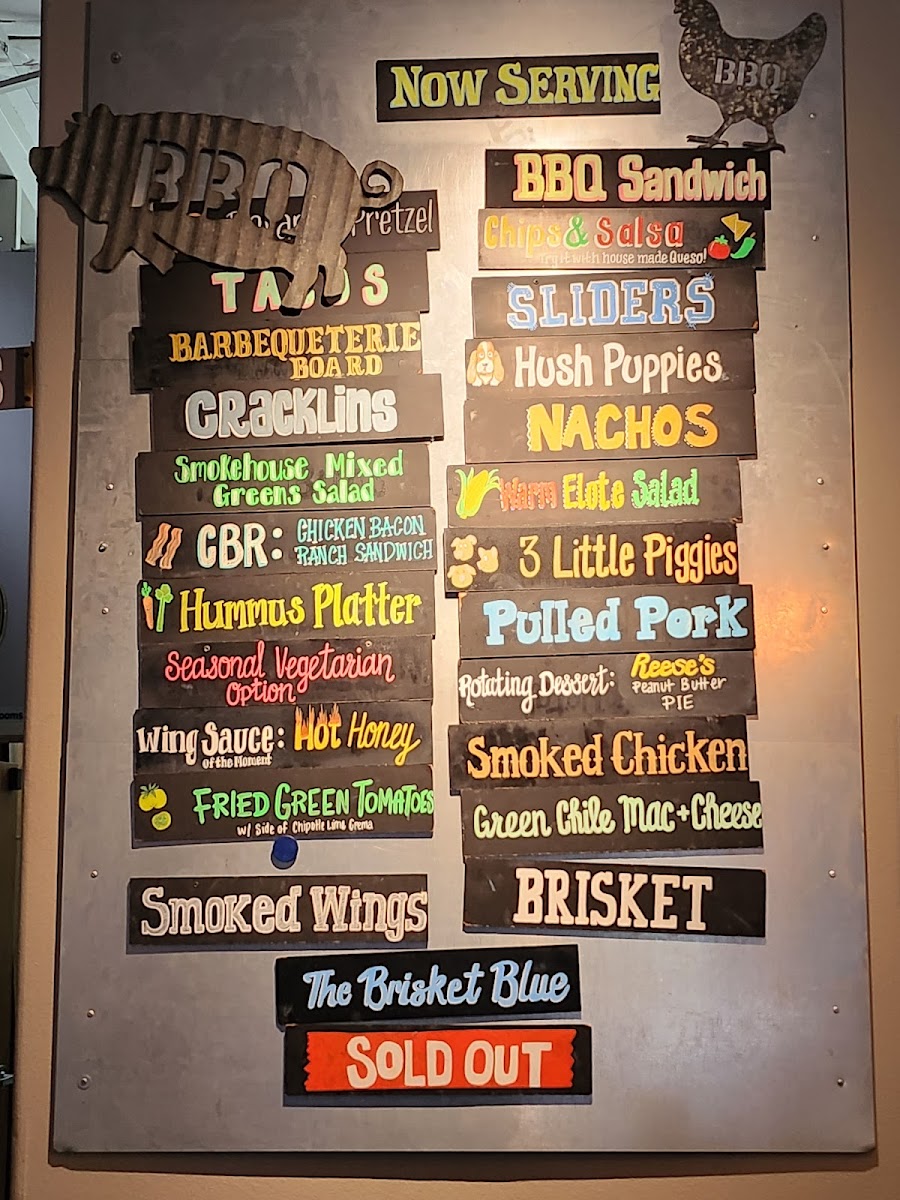 Now Serving
BBQ
BBQ
Pretzel
TACOS
BARBEQUETERIE
BOARD
Cracklins
Smokehouse Mixed
Greens Salad
CBR: CHICKEN BACON
RANCH SANDWICH
Hummus Platter
Seasonal Vegetarian
Option
Wing Sauce: Hot Honey
of the Moment
FRIED GREEN TOMATOES
w/ Side of Chipotle Lime Crema
Smoked Wings
BBQ Sandwich
Chips & Salsa
Try it with house made Queso!
SLIDERS
Hush Puppies
NACHOS
Warm Elote Salad
3 Little Piggies
Pulled Pork
Rotating Dessert: Reese's
Peanut Butter
PIE
Smoked Chicken
Green Chile Mac + Cheese
BRISKET
The Brisket Blue
SOLD OUT